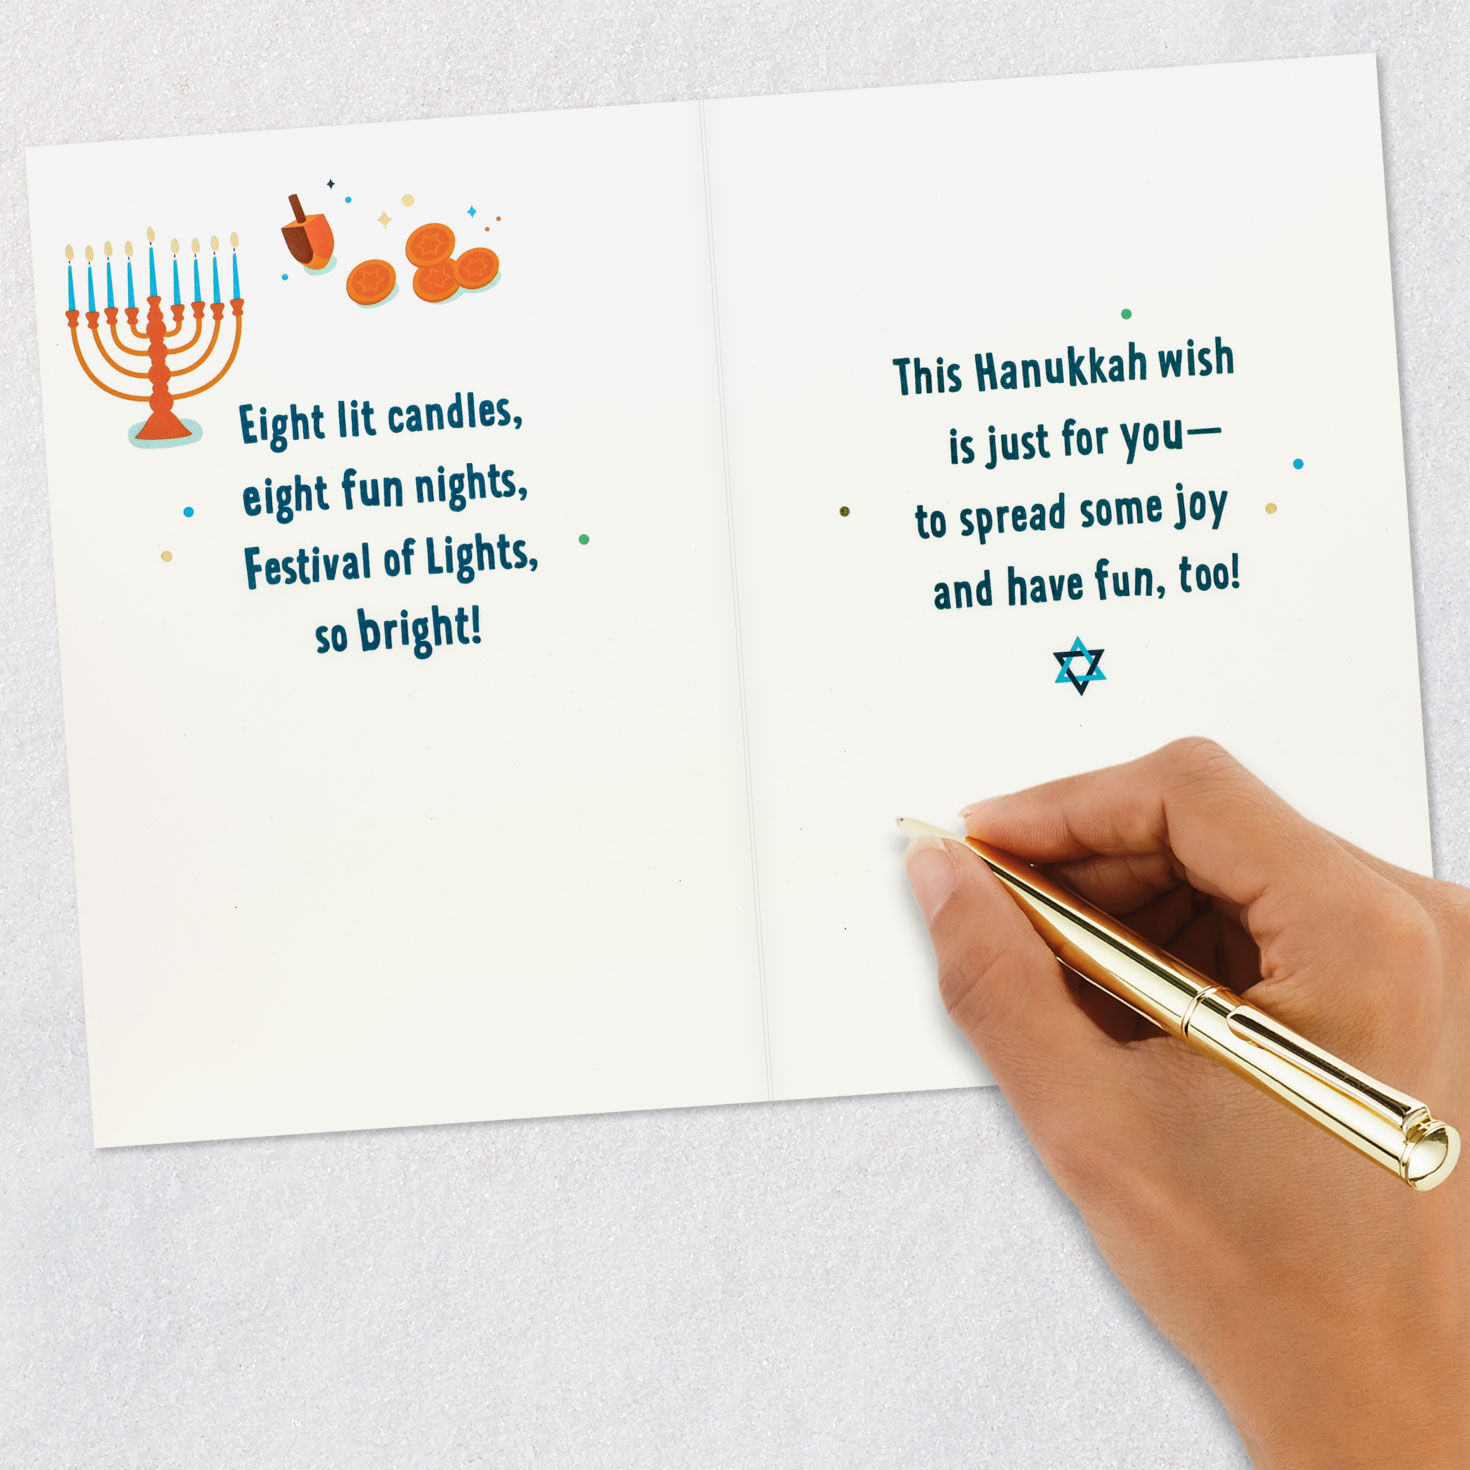 Eight lit candles,
eight fun nights,
Festival of Lights,
so bright!
This Hanukkah wish
is just for you—
to spread some joy
and have fun, too!